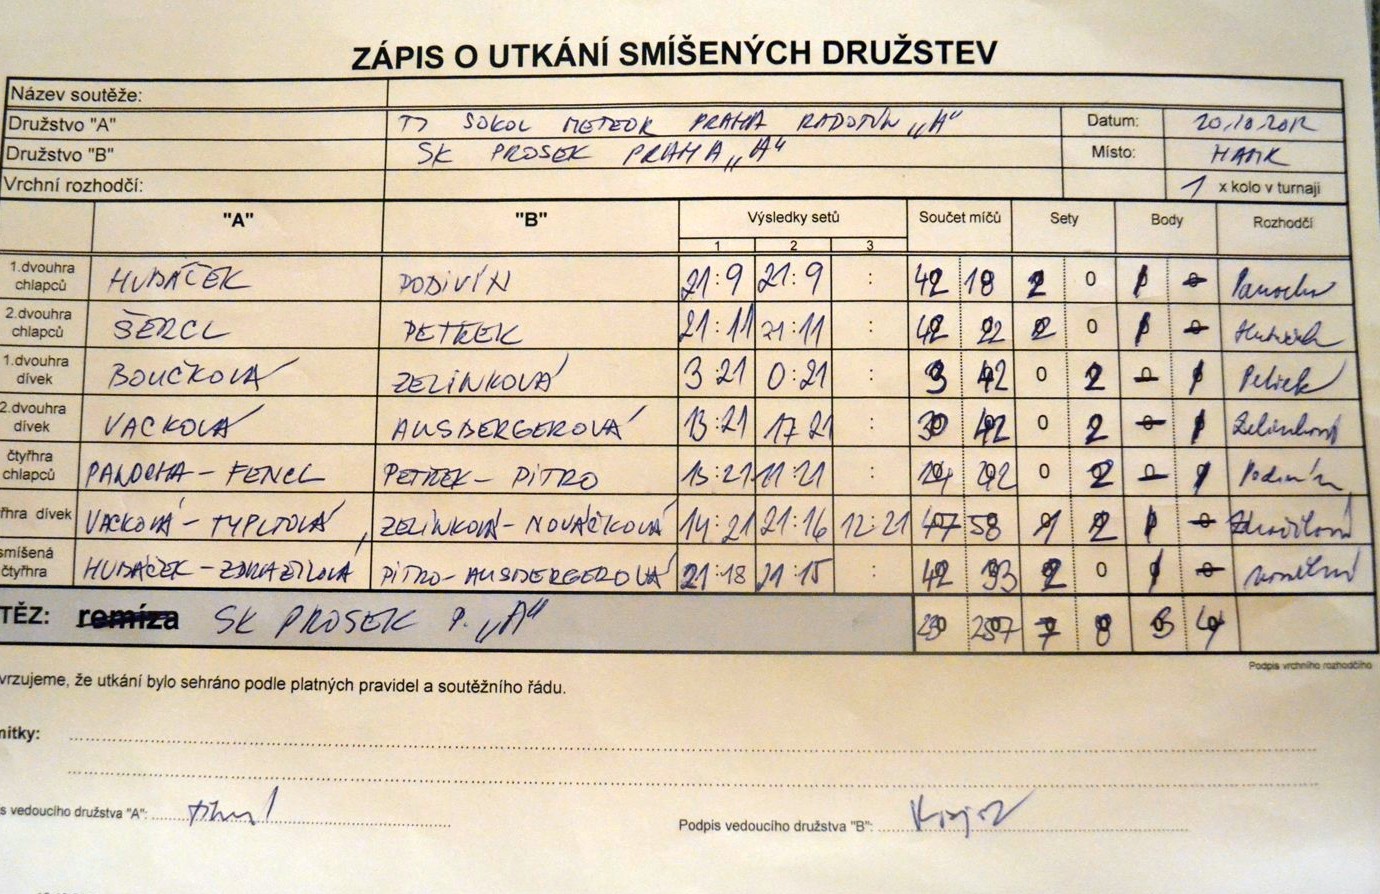 ZÁPIS O UTKÁNÍ SMÍŠENÝCH DRUŽSTEV
Název soutěže:
Družstvo "A" TJ SOKOL METEOR PRAHA RADOTÍN „A“ Datum: 20.10.2012
Družstvo "B" SK PROSEK PRAHA „A“ Místo: HAMR
Vrchní rozhodčí: 1 x kolo v turnaji
"A" "B" Výsledky setů Součet míčů Sety Body Rozhodčí
1 2 3
1.dvouhra chlapců HUBÁČEK PODIVÍN 21:9 21:9 : 42 18 2 0 1 0 Panocha
2.dvouhra chlapců ŠERCL PETREK 21:11 21:11 : 42 22 2 0 1 0 Hubáček
1.dvouhra dívek BOUČKOVÁ ZELINKOVÁ 3 21 0:21 : 3 42 0 2 0 1 Petrek
2.dvouhra dívek VACKOVÁ AUSBERGEROVÁ 13:21 17 21 : 30 42 0 2 0 1 Zelinková
čtyřhra chlapců PANOCHA - FENCL PETREK - PITRO 13:21 11:21 : 24 42 0 2 0 1 Podivín
hra dívek VACKOVÁ - TYPLTOVÁ, ZELINKOVÁ - NOVÁČKOVÁ 14:21 21:16 12:21 47 58 1 2 1 0 Zdražilová
smíšená čtyřhra HUBÁČEK - ZDRAŽILOVÁ PITRO - AUSBERGEROVÁ 21:18 21:15 : 42 33 2 0 1 0
TĚZ: remíza SK PROSEK P. „A“ 230 257 7 8 3 4
Podpis vrchního rozhodčího
vrzujeme, že utkání bylo sehráno podle platných pravidel a soutěžního řádu.
mitky:
s vedoucího družstva "A":
Podpis vedoucího družstva "B":